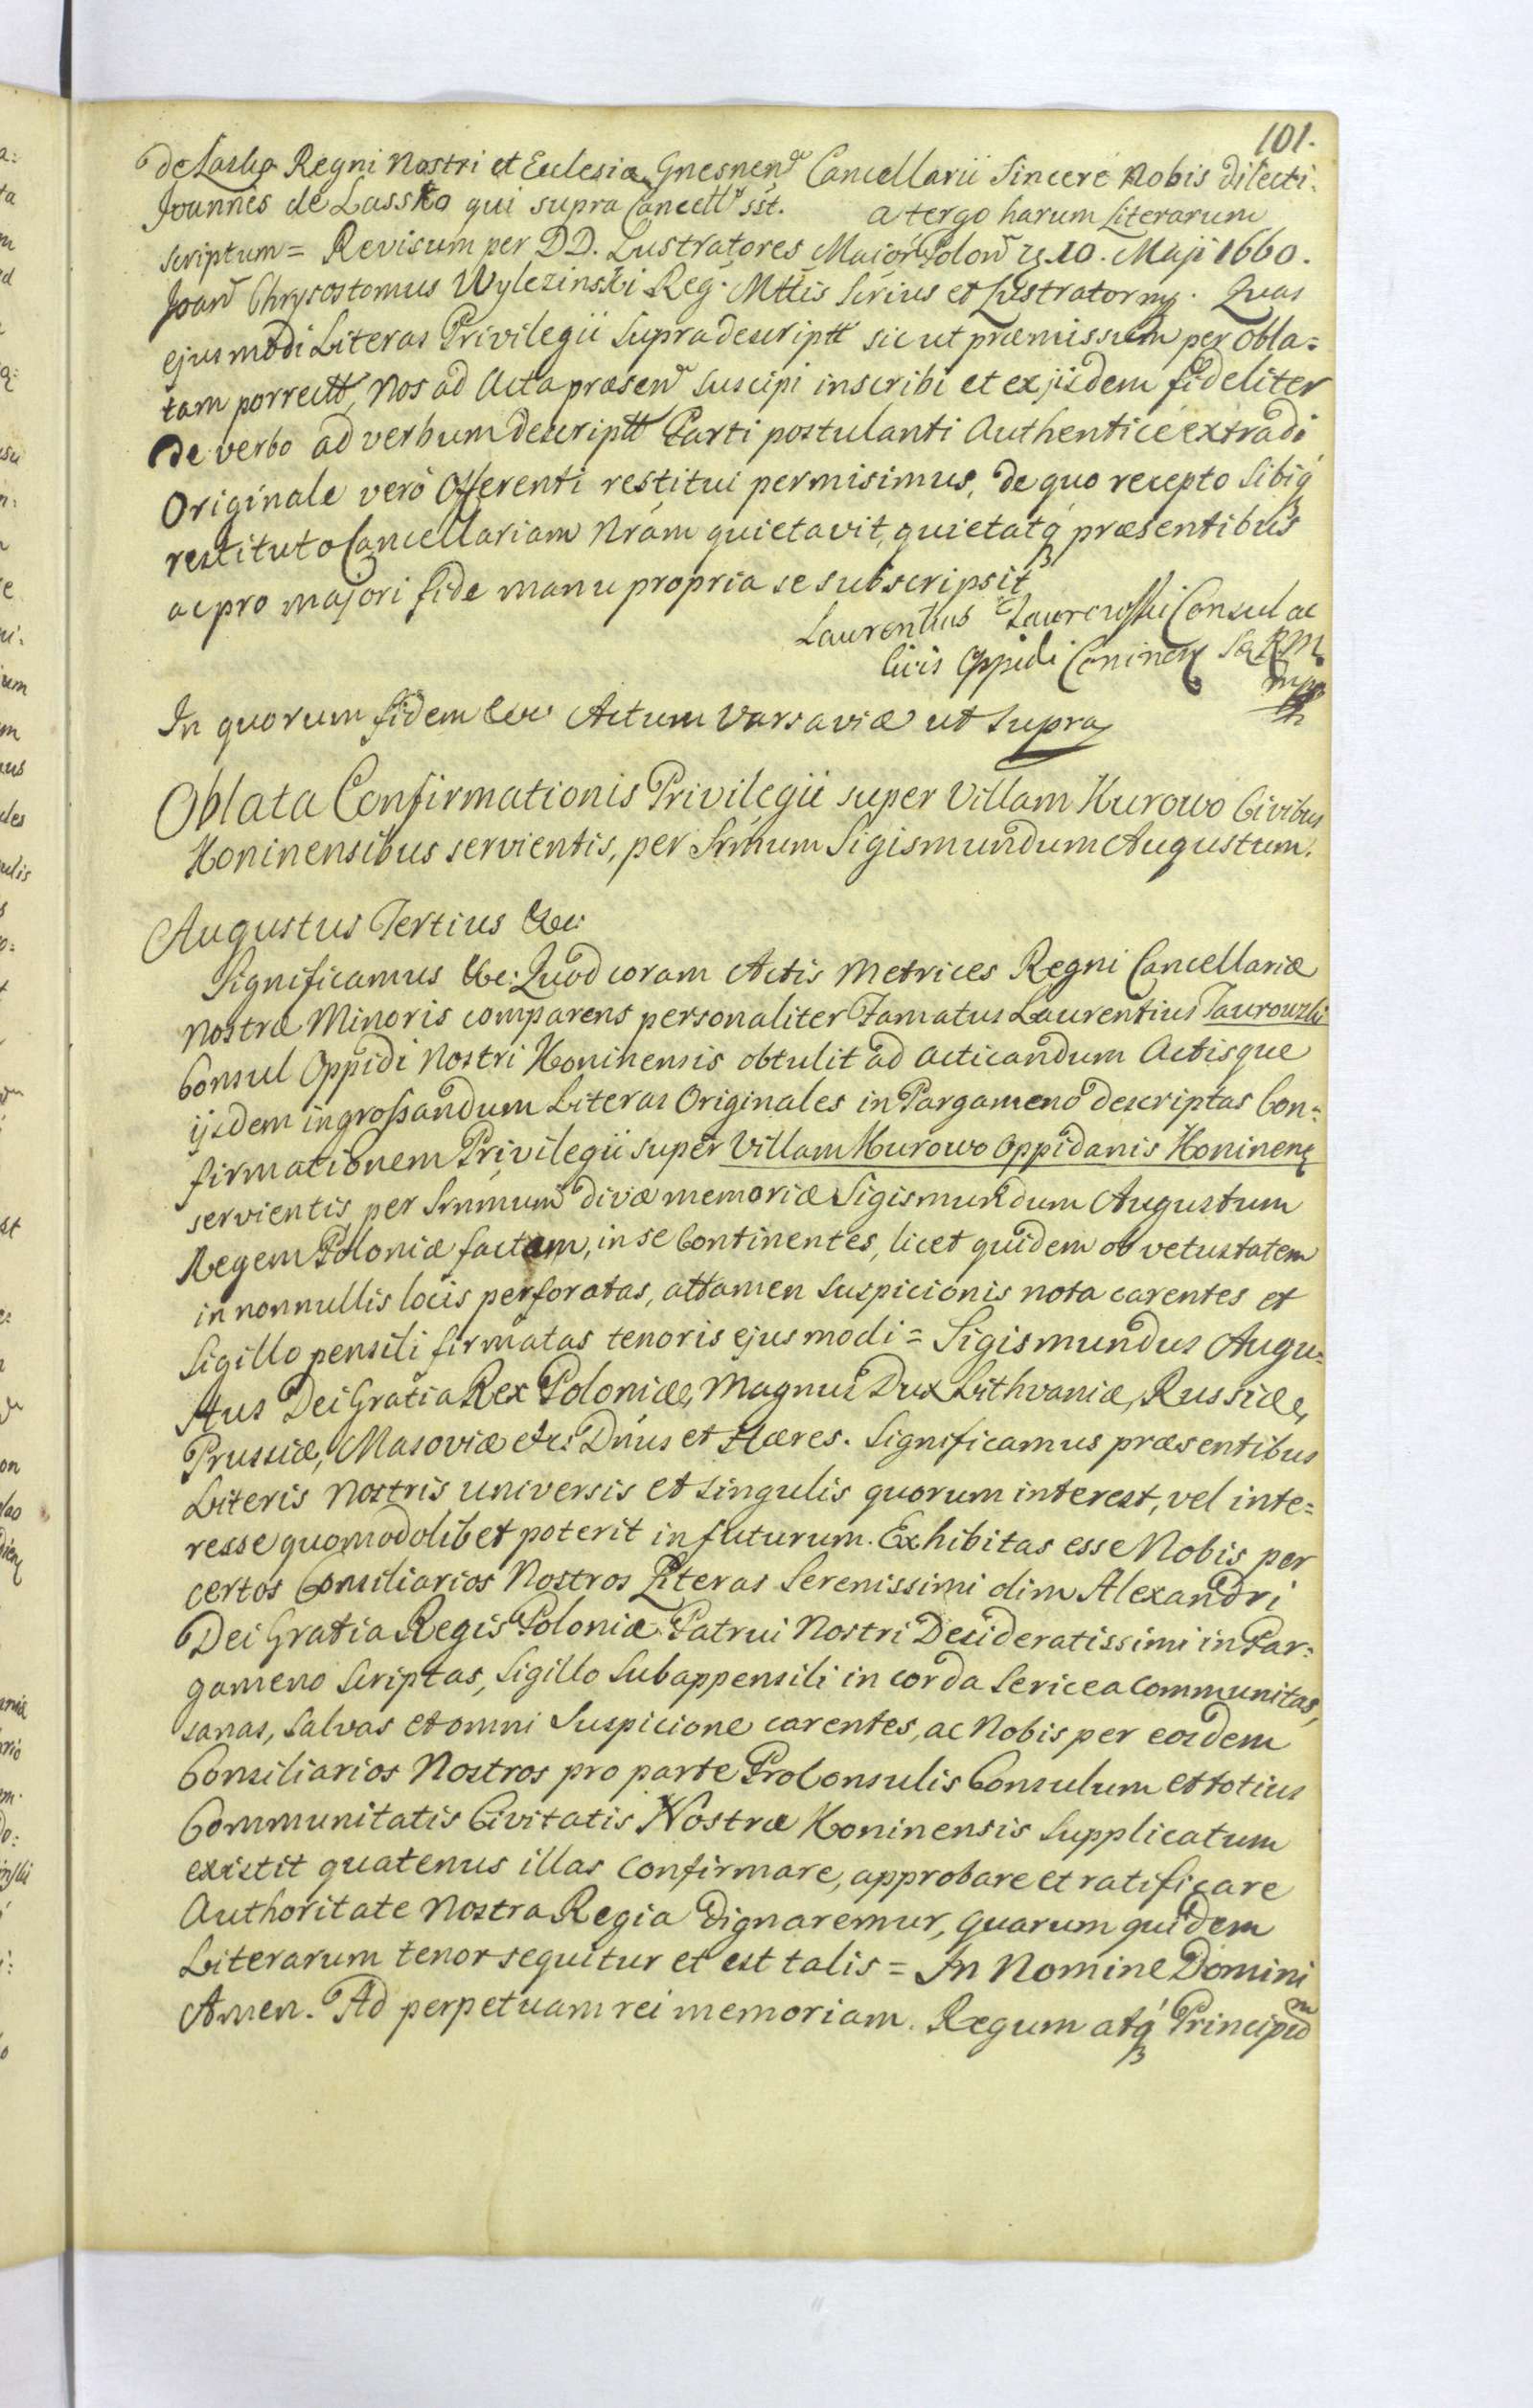 101.
de Lasko Regni Nostri et Ecclesiæ Gnesnen Cancellarii Sincere Nobis dilecti.
Joannes de Lassko qui supra Cancell sst. a tergo harum Literarum
scriptum = Revisum per DD. Lustratores Maior Polon 10. Maji 1660.
Joan Chrysostomus Wylezinski Reg. Mttis Scrius et Lustrator mp. Quas
ejusmodi Literas Privilegii supradescriptt sicut præmissum per obla=
tam porrectt, Nos ad Acta præsen suscipi inscribi et ex jisdem fideliter
de verbo ad verbum descriptt Parti postulanti Authenticè extradi
Originale verò Offerenti restitui permisimus, de quo recepto sibiq
restituto Cancellariam Nram quietavit, quietatq præsentibus
ac pro majori fide manu propria se subscripsit
Laurentius Taurowski Consul ac
Civis Oppidi Coninen S R M
mp
In quorum fidem &c Actum Varsaviæ ut supra
Oblata Confirmationis Privilegii super Villam Kurowo Civibus
Koninensibus servientis, per Srmum Sigismundum Augustum.
Augustus Tertius &c:
Significamus &c: Quod coram Actis Metrices Regni Cancellariæ
Nostræ Minoris comparens personaliter Famatus Laurentius Taurowski
Consul Oppidi Nostri Koninensis obtulit ad acticandum Actisque
ijsdem ingrossandum Literas Originales in Pargameno descriptas Con=
firmationem Privilegii super Villam Kurowo Oppidanis Koninen
servientis per Srmmum divæ memoriæ Sigismundum Augustum
Regem Poloniæ factam, in se Continentes, licet quidem ob vetustatem
in nonnullis locis perforatas, attamen suspicionis nota carentes et
Sigillo pensili firmatas tenoris ejusmodi = Sigismundus Augu=
stus Dei Gratia Rex Poloniæ, Magnus Dux Lithvaniæ, Russiæ,
Prussiæ, Masoviæ &c: Dnus et Hæres. Significamus præsentibus
Literis Nostris universis et singulis quorum interest, vel inte=
resse quomodolibet poterit in futurum. Exhibitas esse Nobis per
certos Consiliarios Nostros Literas Serenissimi olim Alexandri
Dei Gratia Regis Poloniæ Patrui Nostri Desideratissimi in Par=
gameno scriptas, Sigillo subappensili in corda sericea communitas,
sanas, salvas et omni suspicione carentes, ac Nobis per eosdem
Consiliarios Nostros pro parte ProConsulis Consulum et totius
Communitatis Civitatis Nostræ Koninensis supplicatum
existit quatenus illas confirmare, approbare et ratificare
Authoritate Nostra Regia dignaremur, quarum quidem
Literarum tenor sequitur et est talis = In Nomine Domini
Amen. Ad perpetuam rei memoriam. Regum atq Principum